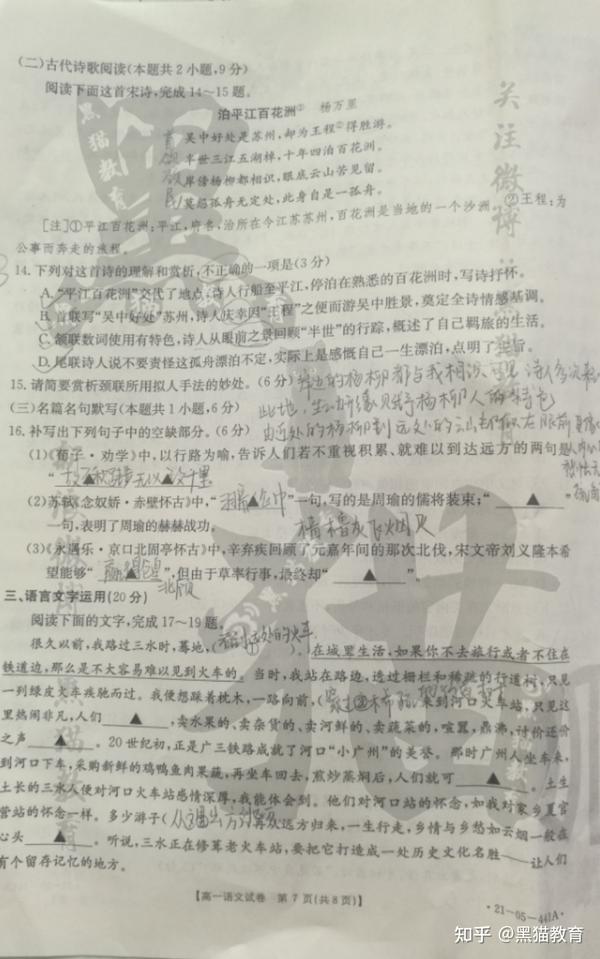 (二)古代诗歌阅读(本题共2小题,9分)
阅读下面这首宋诗,完成14~15题。
泊平江百花洲① 杨万里
吴中好处是苏州,却为王程②得胜游。
半世三江五湖棹,十年四泊百花洲。
岸傍杨柳都相识,眼底云山苦见留。
莫怨孤舟无定处,此身自是一孤舟。
[注]①平江百花洲:平江,府名,治所在今江苏苏州,百花洲是当地的一个沙洲。②王程:为
公事而奔走的旅程。
14.下列对这首诗的理解和赏析,不正确的一项是(3分)
A.“平江百花洲”交代了地点,诗人行船至平江,停泊在熟悉的百花洲时,写诗抒怀。
B.首联写“吴中好处”苏州,诗人庆幸因“王程”之便而游吴中胜景,奠定全诗情感基调。
C.颔联数词使用有特色,诗人从眼前之景回顾“半世”的行踪,概述了自己羁旅的生活。
D.尾联诗人说不要责怪这孤舟漂泊不定,实际上是感慨自己一生漂泊,点明了主旨。
15.请简要赏析颈联所用拟人手法的妙处。(6分)
岸边的杨柳都与我相识
(三)名篇名句默写(本题共1小题,6分)
此地,生动形象
16.补写出下列句子中的空缺部分。(6分)
由近处的杨柳到远处的云山
(1)《荀子·劝学》中,以行路为喻,告诉人们若不重视积累、就难以到达远方的两句是
“ ▲ ”
(2)苏轼《念奴娇·赤壁怀古》中,“ ▲ ”一句,写的是周瑜的儒将装束;“ ▲ ”
一句,表明了周瑜的赫赫战功。
樯橹灰飞烟灭
(3)《永遇乐·京口北固亭怀古》中,辛弃疾回顾了元嘉年间的那次北伐,宋文帝刘义隆本希
望能够“ ▲ ”,但由于草率行事,最终却“ ▲ ”。
三、语言文字运用(20分)
阅读下面的文字,完成17~19题。
很久以前,我路过三水时,蓦地,( )。在城里生活,如果你不去旅行或者不住在
铁道边,那么是不大容易难以见到火车的。当时,我站在路边,透过栅栏和稀疏的行道树,只见
一列绿皮火车疾驰而过。我便想踩着枕木,一路向前,( )来到河口火车站,只见这
里热闹非凡,人们 ▲ ,卖水果的、卖杂货的、卖河鲜的、卖蔬菜的,喧嚣,鼎沸,讨价还价
之声 ▲ 。20世纪初,正是广三铁路成就了河口“小广州”的美誉。那时广州人坐车来,
到河口下车,采购新鲜的鸡鸭鱼肉果蔬,再坐车回去,煎炒蒸焖后,人们就可 ▲ 。土生
土长的三水人便对河口火车站感情深厚,我能体会到。他们对河口站的怀念,如我对家乡夏官
营站的怀念一样。多少游子( )从远方归来,一生行走,乡情与乡愁如云烟一般在
心头 ▲ 。听说,三水正在修葺老火车站,要把它打造成一处历史文化名胜——让人们
有个留存记忆的地方。
【高一语文试卷 第7页(共8页)】
·21-05-441A·
关注微博
黑猫教育
知乎 @黑猫教育